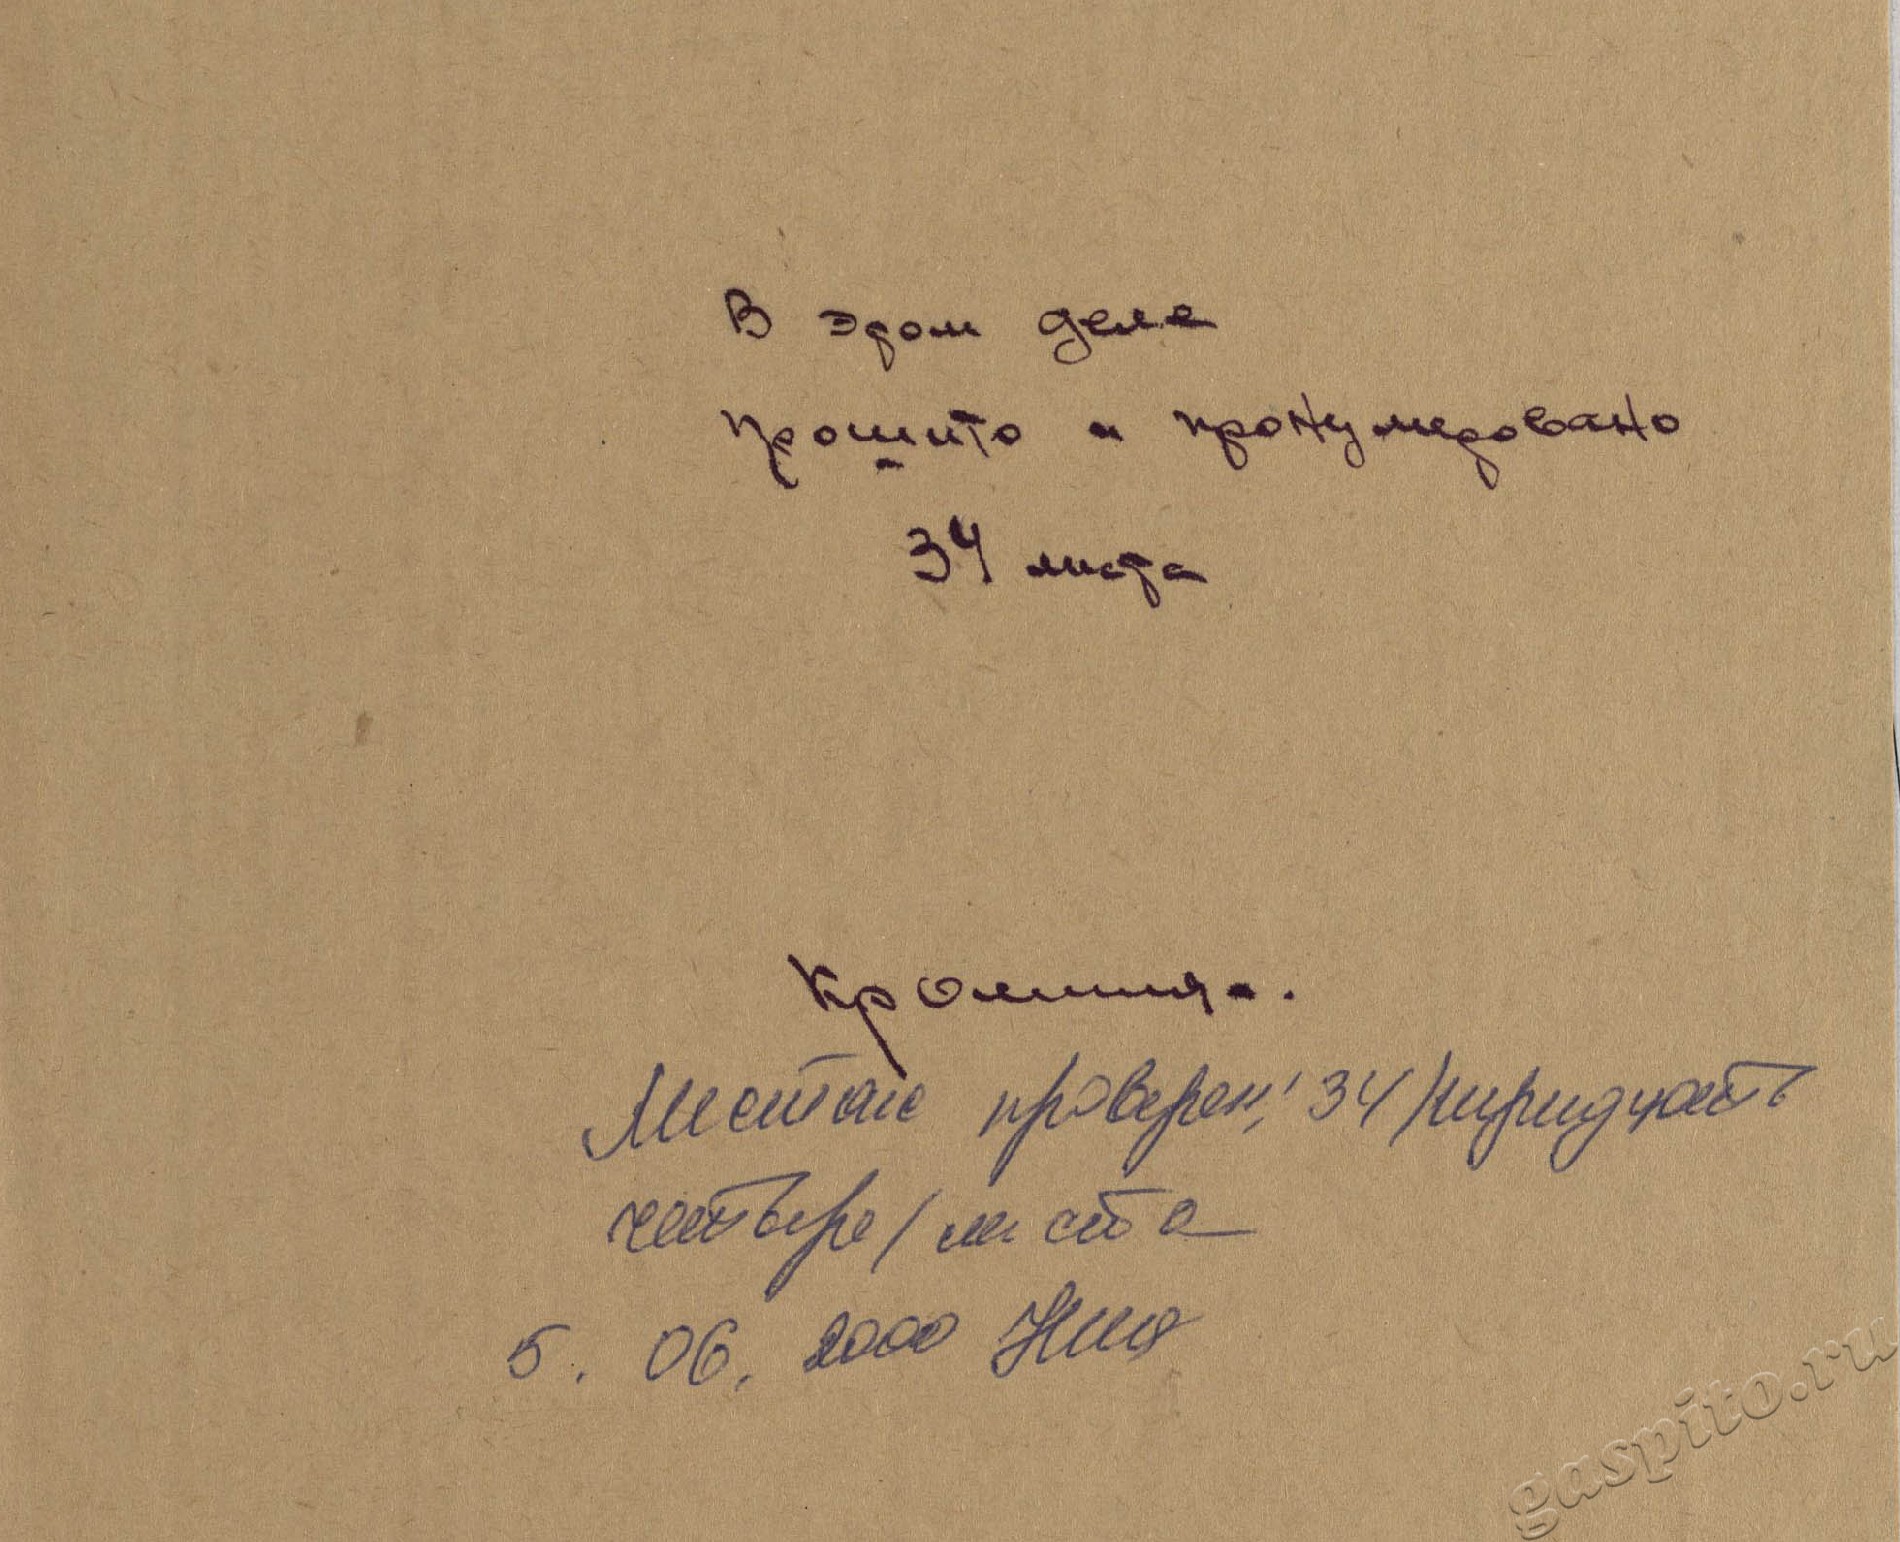 В этом деле
прошито и пронумеровано
34 листа
Листаж проверен, 34 /тридцать
четыре/ листа
5. 06. 2000
gaspito.ru